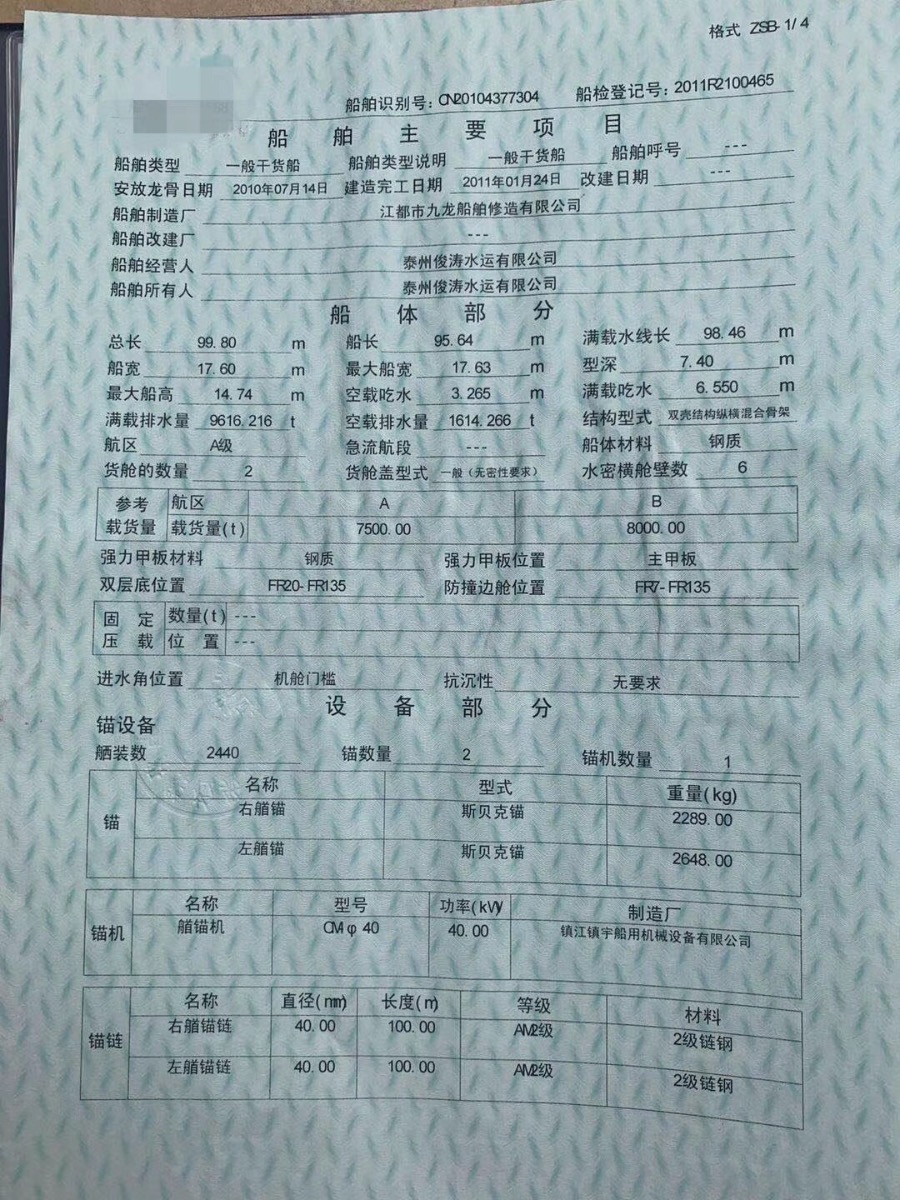 格式 ZSB-1/4
船舶识别号：CN20104377304 船检登记号：2011R2100465
船舶主要项目
船舶类型 一般干货船 船舶类型说明 一般干货船 船舶呼号 ---
安放龙骨日期 2010年07月14日 建造完工日期 2011年01月24日 改建日期 ---
船舶制造厂 江都市九龙船舶修造有限公司
船舶改建厂 ---
船舶经营人 泰州俊涛水运有限公司
船舶所有人 泰州俊涛水运有限公司
船体部分
总长 99.80 m 船长 95.64 m 满载水线长 98.46 m
船宽 17.60 m 最大船宽 17.63 m 型深 7.40 m
最大船高 14.74 m 空载吃水 3.265 m 满载吃水 6.550 m
满载排水量 9616.216 t 空载排水量 1614.266 t 结构型式 双壳结构纵横混合骨架
航区 A级 急流航段 --- 船体材料 钢质
货舱的数量 2 货舱盖型式 一般（无密性要求） 水密横舱壁数 6
参考 航区 A B
载货量 载货量(t) 7500.00 8000.00
强力甲板材料 钢质 强力甲板位置 主甲板
双层底位置 FR20-FR135 防撞边舱位置 FR7-FR135
固定 数量(t) ---
压载 位置 ---
进水角位置 机舱门槛 抗沉性 无要求
设备部分
锚设备
舾装数 2440 锚数量 2 锚机数量 1
名称 型式 重量(kg)
锚 右艏锚 斯贝克锚 2289.00
左艏锚 斯贝克锚 2648.00
名称 型号 功率(kW) 制造厂
锚机 艏锚机 CM φ40 40.00 镇江镇宇船用机械设备有限公司
名称 直径(mm) 长度(m) 等级 材料
锚链 右艏锚链 40.00 100.00 AM2级 2级链钢
左艏锚链 40.00 100.00 AM2级 2级链钢